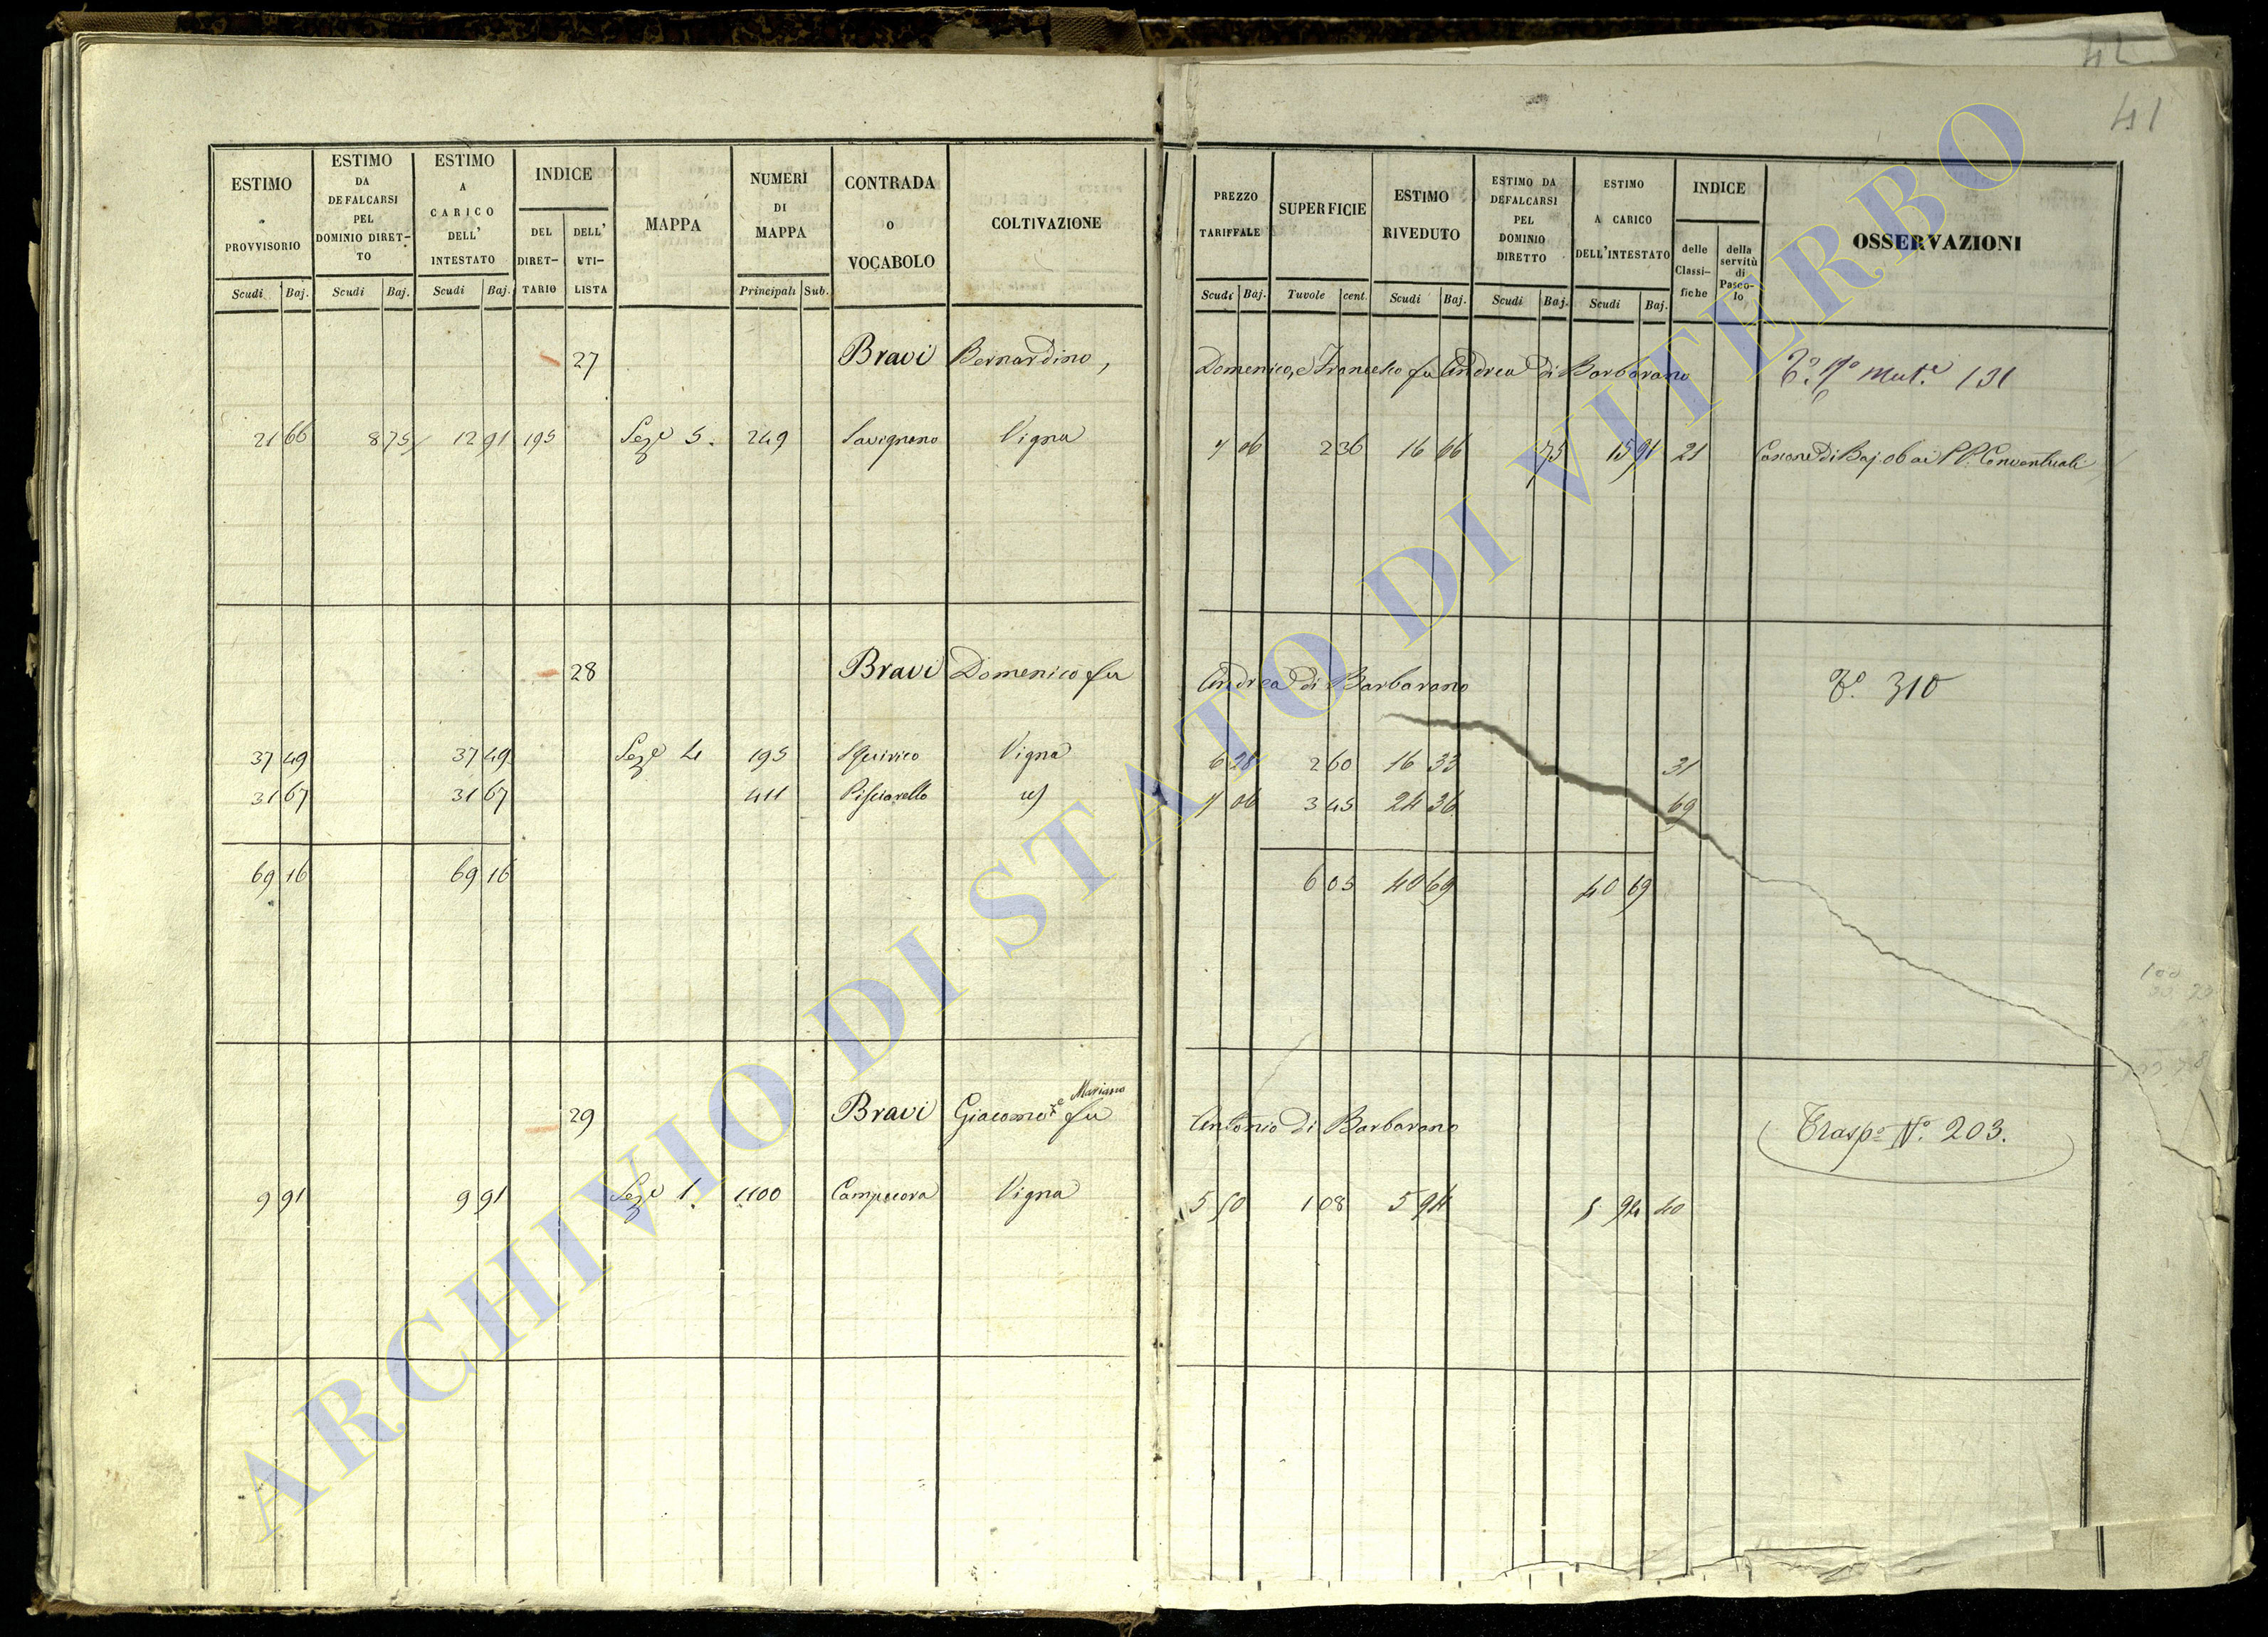 42
41
ESTIMO PROVVISORIO Scudi Baj.
ESTIMO DA DEFALCARSI PEL DOMINIO DIRETTO Scudi Baj.
ESTIMO A CARICO DELL' INTESTATO Scudi Baj.
INDICE
DEL DIRETTARIO
DELL' UTILISTA
MAPPA
NUMERI DI MAPPA Principali Sub.
CONTRADA o VOCABOLO
COLTIVAZIONE
PREZZO TARIFFALE Scudi Baj.
SUPERFICIE Tavole cent.
ESTIMO RIVEDUTO Scudi Baj.
ESTIMO DA DEFALCARSI PEL DOMINIO DIRETTO Scudi Baj.
ESTIMO A CARICO DELL'INTESTATO Scudi Baj.
INDICE
delle Classifiche
della servitù di Pascolo
OSSERVAZIONI
27 Bravi Bernardino, Domenico, e Francesco fu Andrea di Barbarano T.º 1º Mut.e 131
21 66 8 75 12 91 195 Seze 5. 249 Savignano Vigna 7 06 2 36 16 66 75 15 91 21 Canone di Baj. 06 ai PP. Conventuali
28 Bravi Domenico fu Andrea di Barbarano T.º 310
37 49 37 49 Seze 4 195 Vigna 6 28 2 60 16 33 31
31 67 31 67 411 Pisciarello 7 06 3 45 24 36 69
69 16 69 16 6 05 40 69 40 69
29 Bravi Giacomo e Mariano fu Antonio di Barbarano Trasp.º Nº. 203.
9 91 9 91 Seze 1. 1100 Vigna 5 50 1 08 5 94 5 94 40
ARCHIVIO DI STATO DI VITERBO